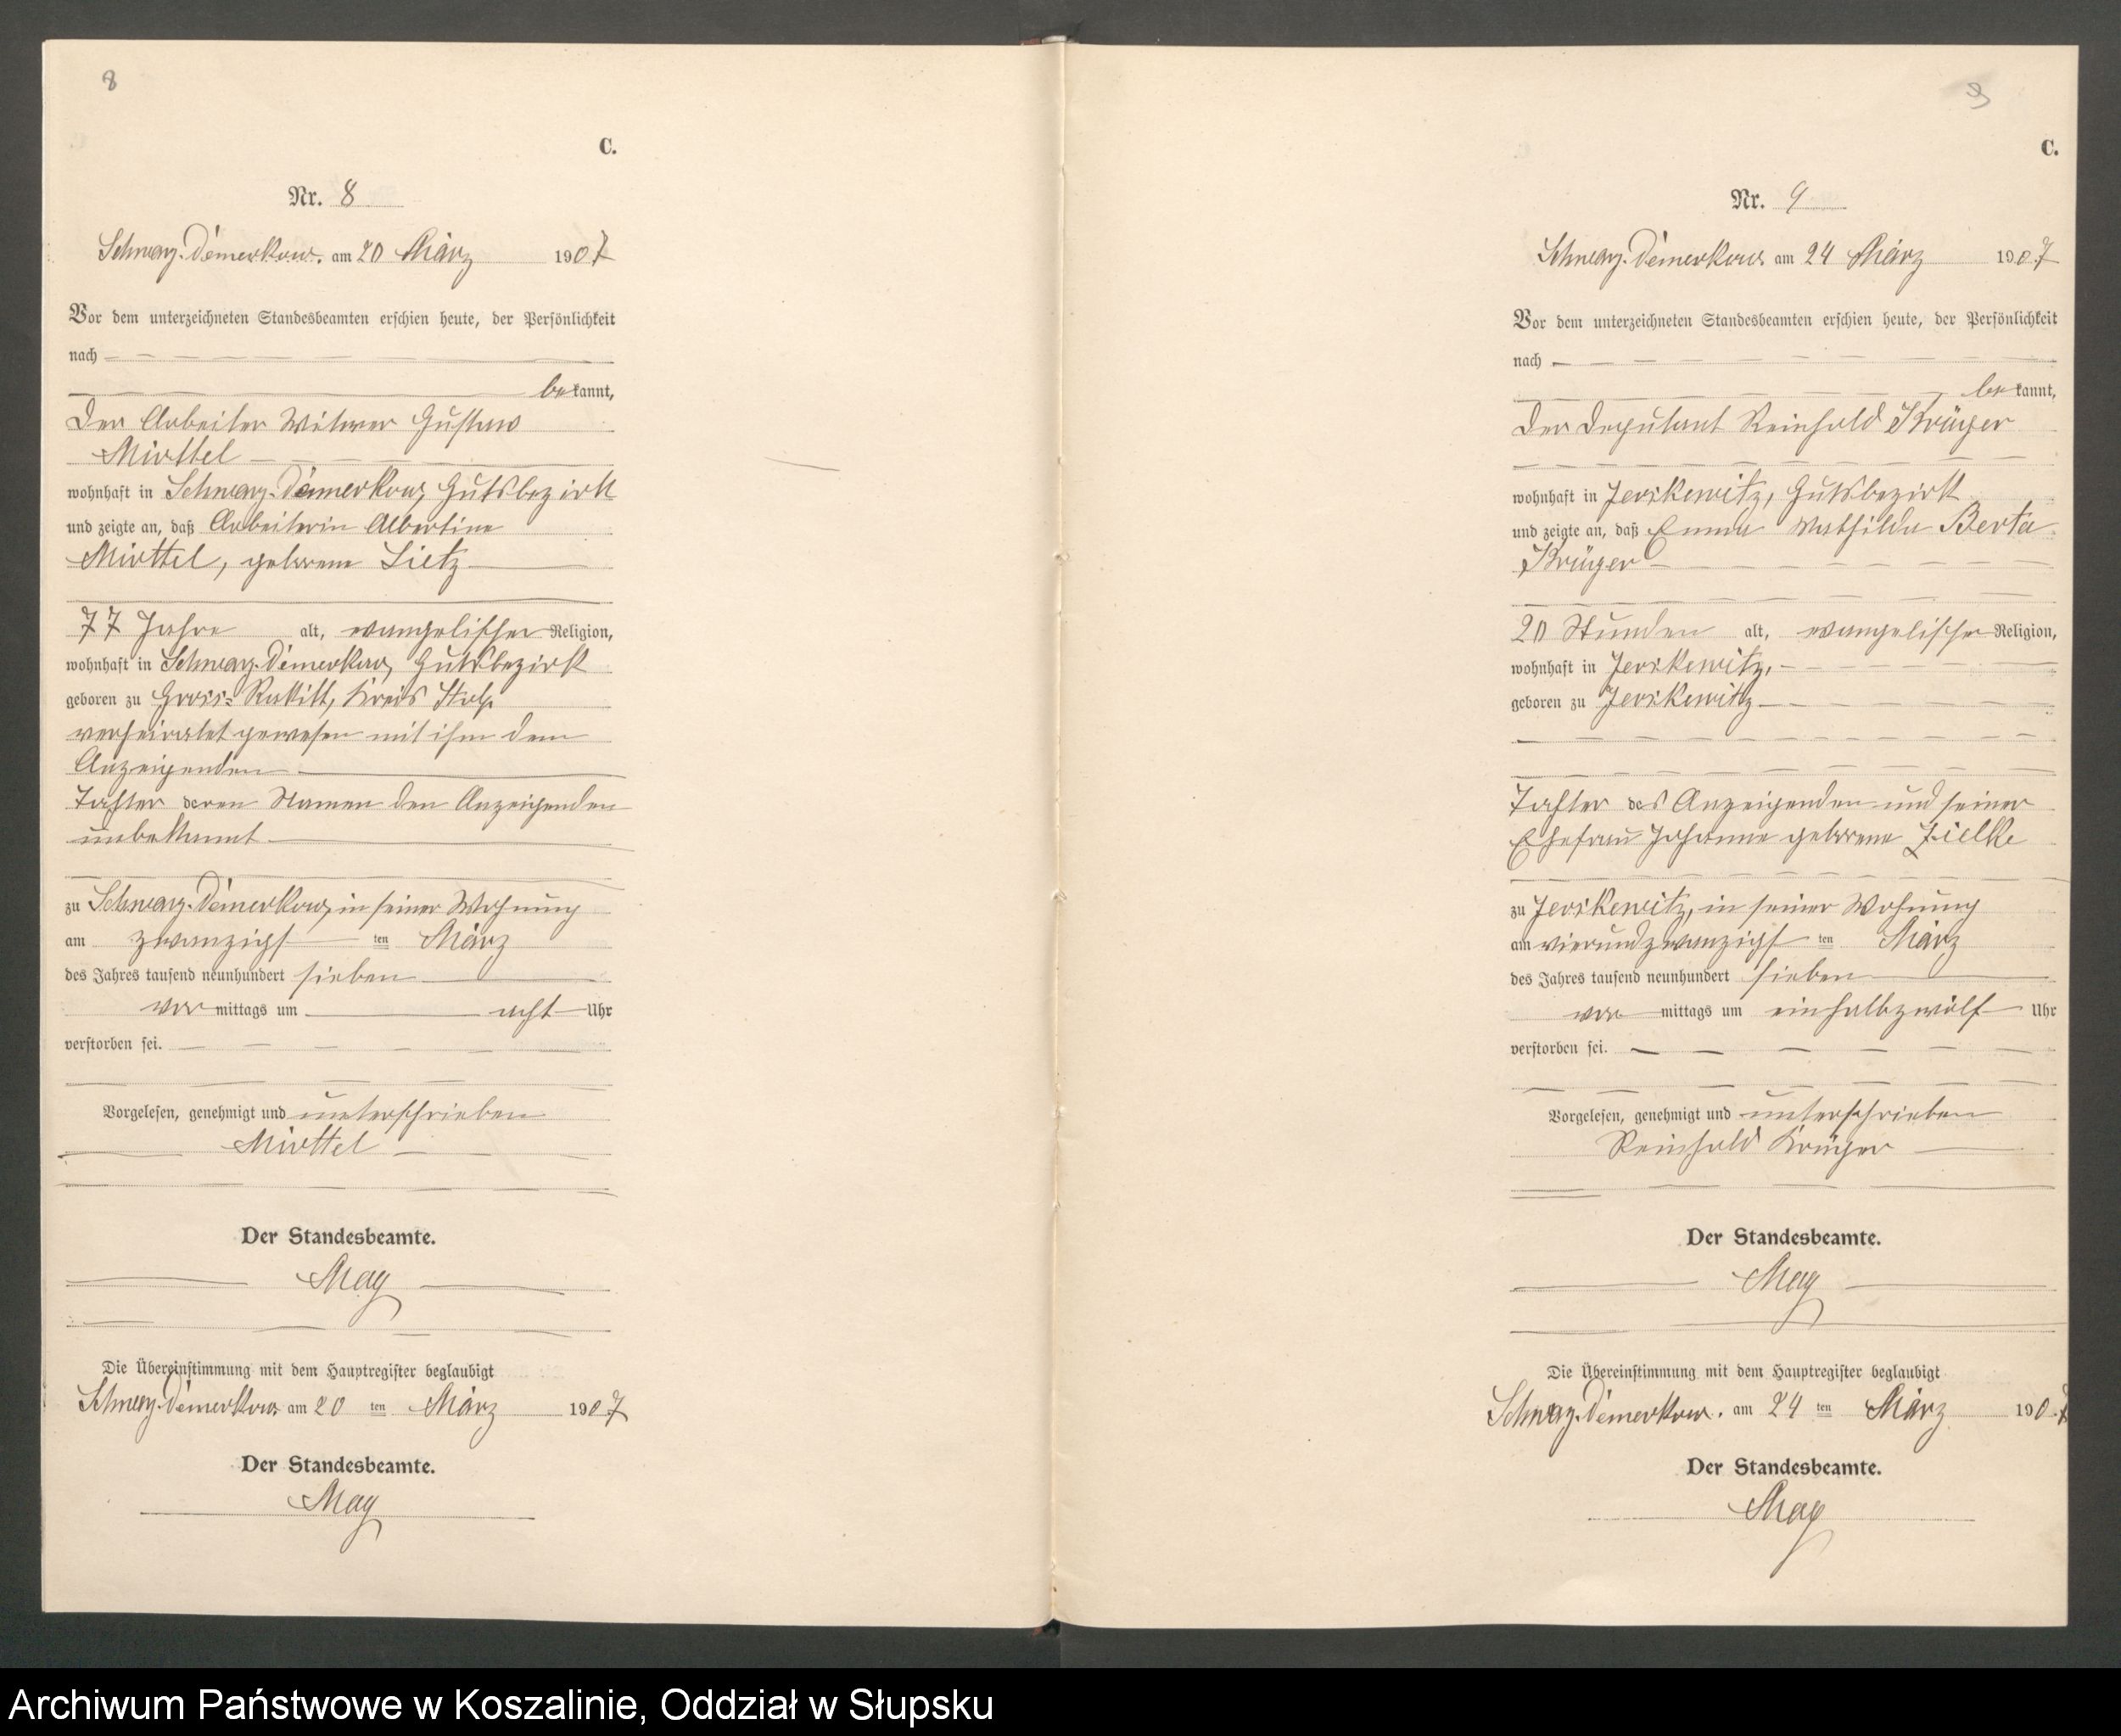 8
C.
Nr. 8
Schwarz-Damerkow, am 20 März 1907
Vor dem unterzeichneten Standesbeamten erschien heute, der Persönlichkeit
nach
bekannt,
Der Arbeiter Witwer Gustav
Mirttel
wohnhaft in Schwarz-Damerkow, Gutsbezirk
und zeigte an, daß Arbeiterin Albertine
Mirttel, geborene Lietz
77 Jahre alt, evangelischer Religion,
wohnhaft in Schwarz-Damerkow, Gutsbezirk
geboren zu Gross-Rakitt, Kreis Stolp
verheiratet gewesen mit ihm dem
Anzeigenden
Tochter deren Namen den Anzeigenden
unbekannt
zu Schwarz-Damerkow, in seiner Wohnung
am zwanzigsten März
des Jahres tausend neunhundert sieben
vor mittags um acht Uhr
verstorben sei.
Vorgelesen, genehmigt und unterschrieben
Mirttel
Der Standesbeamte.
May
Die Übereinstimmung mit dem Hauptregister beglaubigt
Schwarz-Damerkow am 20 ten März 1907
Der Standesbeamte.
May
9
C.
Nr. 9
Schwarz-Damerkow am 24 März 1907
Vor dem unterzeichneten Standesbeamten erschien heute, der Persönlichkeit
nach
bekannt,
Der Deputant Reinhold Krüger
wohnhaft in Jerskewitz, Gutsbezirk
und zeigte an, daß Emma Mathilde Berta
Krüger
20 Stunden alt, evangelischer Religion,
wohnhaft in Jerskewitz,
geboren zu Jerskewitz
Tochter des Anzeigenden und seiner
Ehefrau Johanne geborene Zielke
zu Jerskewitz, in seiner Wohnung
am vierundzwanzigsten März
des Jahres tausend neunhundert sieben
vor mittags um einhalbzwölf Uhr
verstorben sei.
Vorgelesen, genehmigt und unterschrieben
Reinhold Krüger
Der Standesbeamte.
May
Die Übereinstimmung mit dem Hauptregister beglaubigt
Schwarz-Damerkow, am 24 ten März 1907
Der Standesbeamte.
May
Archiwum Państwowe w Koszalinie, Oddział w Słupsku